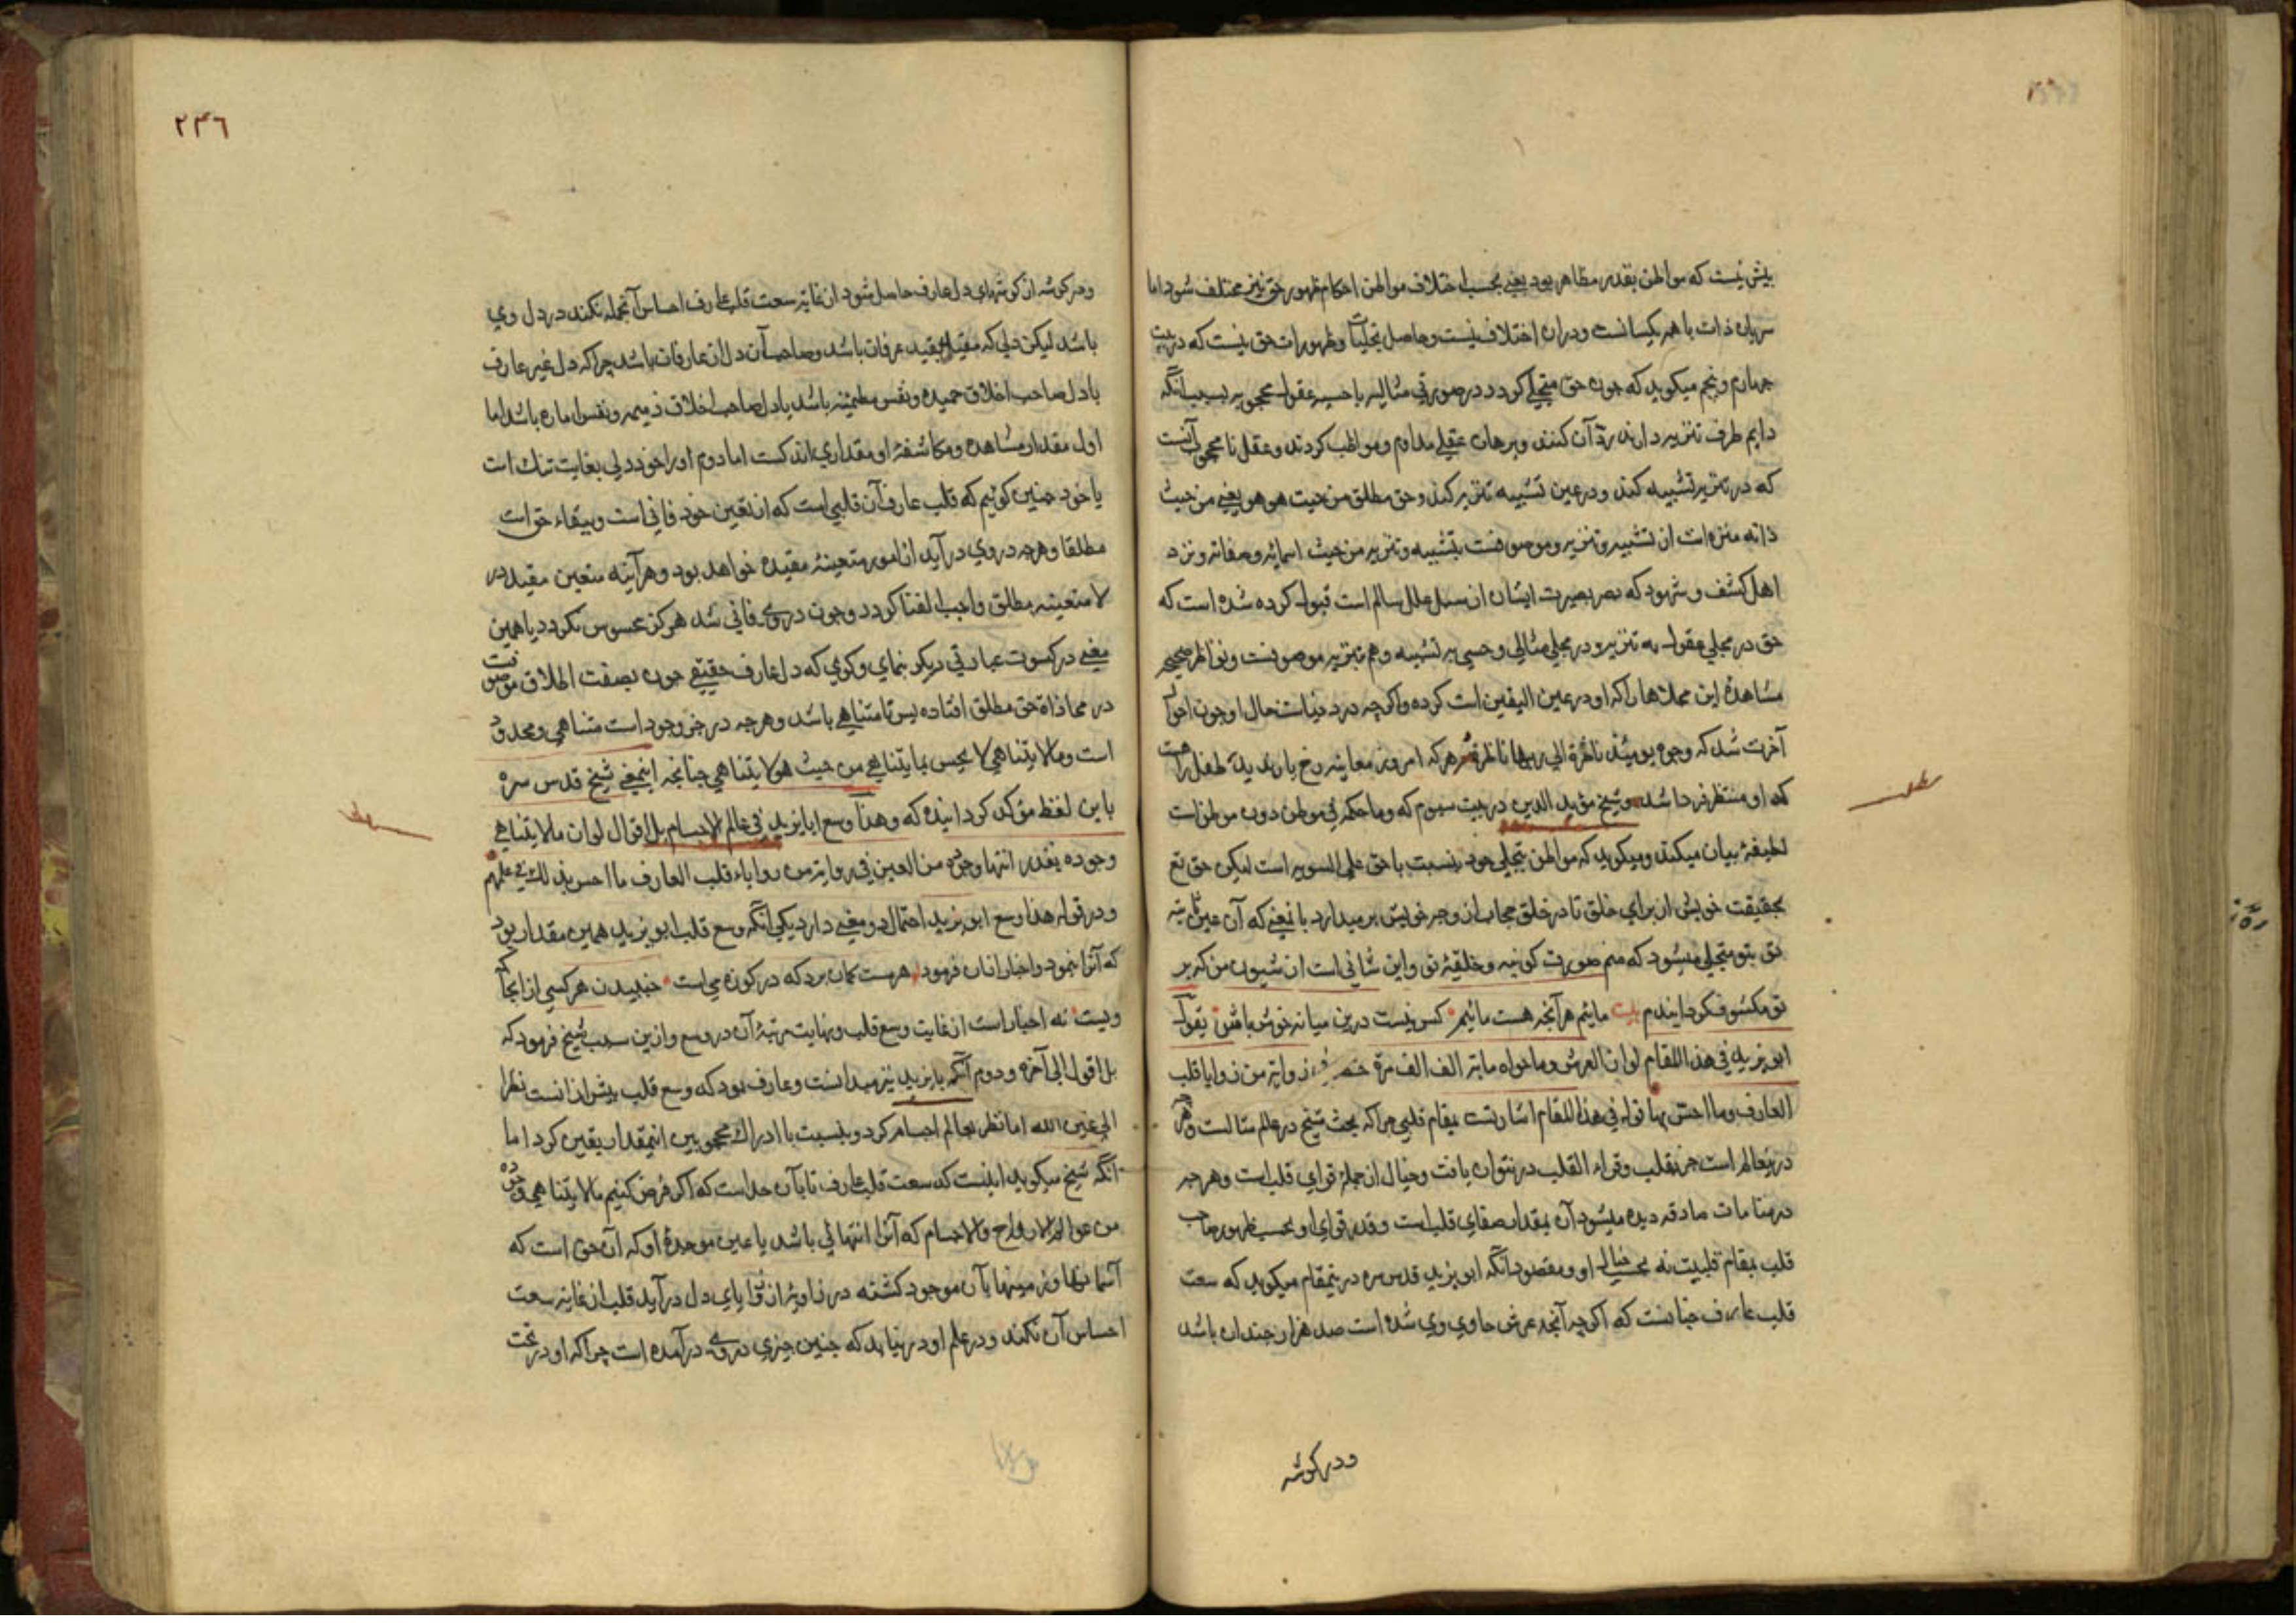 بیش نیست که مواطن بقدر مظاهر بود یعنی بحسب اختلاف مواطن احکام ظهور حق نیز مختلف شود اما
سریان ذات با همه یکسانست ودران اختلاف نیست وحاصل تجلیات وظهورات حق نیست که در بیت
چهارم وپنجم میکوید که چون حق متجلی کردد در صورتی مثالیه یا حسیه عقول محجوبه بسبب آنکه
دایم طرف تنزیه دارند رد آن کنند وبرهان عقلی مداوم ومواظب کردند وعقل نا محجوب آنست
که در تنزیه تشبیه کند ودر عین تشبیه تنزیه کند وحق مطلق من حیث هو هو یعنی من حیث
ذاته منزه است از تشبیه وتنزیه وموصوفست بتشبیه وتنزیه من حیث اسمائه وصفاته ونزد
اهل کشف وشهود که بصر بصیرت ایشان از سبل علل سالم است قبول کرده شده است که
حق در مجلی عقول به تنزیه ودر مجلی مثالی وحسی به تشبیه وهم بتنزیه موصوفست ونواظر صحیحه
مشاهدهٔ این محلات ها را که او در عین الیقین است کرده واکر چه در دنیاست حال او چون احوال
آخرت شد که وجوه یومئذ ناضرة الی ربها ناظرة هر که امروز معاینه رخ یار ندید طفل راهست
که او منتظر فردا شد وشیخ مؤید الدین در بیت سیوم که وما حکمه فی موطن دون موطن است
لطیفهٔ بیان میکند ومیکوید که مواطن تجلی خود نسبت با حق علی السویه است لیکن حق تع
بحقیقت خویش از برای خلق تا در خلق حجاب از وجه خویش بر میدارد بانمعنی که آن عین ثابته
تو بتو متجلی میشود که منم صورت کونیه وخلقیهٔ تو واین شانی است از شیون من که بر
تو مکشوف کردانیدم بیت مائیم هر آنچه هست مائیم کس نیست درین میانه خوش باش یقول
ابو یزید فی هذا المقام لو ان العرش وما حواه مائة الف الف مرة فی زاویة من زوایا قلب
العارف وما احس بها قوله فی هذا المقام اشارتست بمقام قلبی چرا که بحث شیخ در عالم مثالست وهر چه
درینعالم است جز بقلب وقواء القلب در نتوان یافت وخیال از جملهٔ قوای قلب است وهر چه
در منامات صادقه دیده میشود آن بمقدار صفای قلب است وقدر قوای او بحسب ظهور صاحب
قلب بمقام قلبیت نه بحسب خیال او ومقصود آنکه ابو یزید قدس سره درینمقام میکوید که سعت
قلب عارف چنانست که اکر چه آنچه عرش حاوی وی شده است صد هزار چندان باشد
ودر کوشه
۲۴۶
ودر کوشه از کوشهای دل عارف حاصل شود از غایة سعت قلب عارف احساس آنجمله نکند در دل وی
باشد لیکن دلی که مقید بقید عرفان باشد وصاحب آن دل از عارفان باشد چرا که دل غیر عارف
یا دل صاحب اخلاق حمیده ونفس مطمئنه باشد یا دل صاحب اخلاق ذمیمه ونفس اماره باشد اما
اول مقدار مشاهده ومکاشفهٔ او مقداری اندکست اما دوم او را خود دلی بغایت تنک است
یا خود چنین کوئیم که قلب عارف آن قلبی است که از تعین خود فانی است وببقاء حق است
مطلقا وهر چه در وی در آید از امور متعینهٔ مقیده خواهد بود وهر آینه متعین مقید در
لا متعینه مطلق واجب الفنا کردد وچون در وی فانی شد هرکز محسوس نکردد یا همین
معنی در کسوت عبارتی دیکر بنمای وکوی که دل عارف حقیقی چون بصفت اطلاق موصوفست
در محاذاة حق مطلق افتاده پس نا متناهی باشد وهر چه در حیز وجود است متناهی ومحدود
است وما لا یتناهی لا یحس بما یتناهی من حیث هو لا یتناهی چنانچه اینمعنی شیخ قدس سره
باین لفظ مؤکد کردانیده که وهذا وسع ابا یزید فی عالم الاجسام بل اقول لو ان ما لا یتناهی
وجوده یقدر انتهاء وجوده من العین فی زاویة من زوایاء قلب العارف ما احس بذلک فی علمه
ودر قوله هذا وسع ابو یزید احتمال دو معنی دارد یکی آنکه وسع قلب ابو یزید همین مقدار بود
که آنرا نمود واخبار از ان فرمود هر مست کمان برد که در کوزه می است خندیدن هر کسی از انجا که
ویست نه اخبار است از غایت وسع قلب ونهایت مرتبهٔ آن در وسع وازین سبب شیخ فرمود که
بل اقول الی آخره ودوم آنکه بایزید نیز میدانست وعارف بود که وسع قلب بیش از انست نظرا
الی عین الله اما نظر بعالم اجسام کرد وبنسبت با ادراک محجوبین اینمقدار یقین کرد اما
آنکه شیخ میکوید اینست که سعت قلب عارف تا بآن حد است که اکر فرض کنیم ما لا یتناهی وجوده
من عوالم الارواح والاجسام که آنرا انتهائی باشد با عین موجدهٔ او که آن حق است که
آسمانها وزمینها بآن موجود کشته در زاویهٔ از زوایای دل در آید قلب از غایة سعت
احساس آن نکند ودر علم او در نیاید که چنین چیزی در وی در آمده است چرا که او در تحت